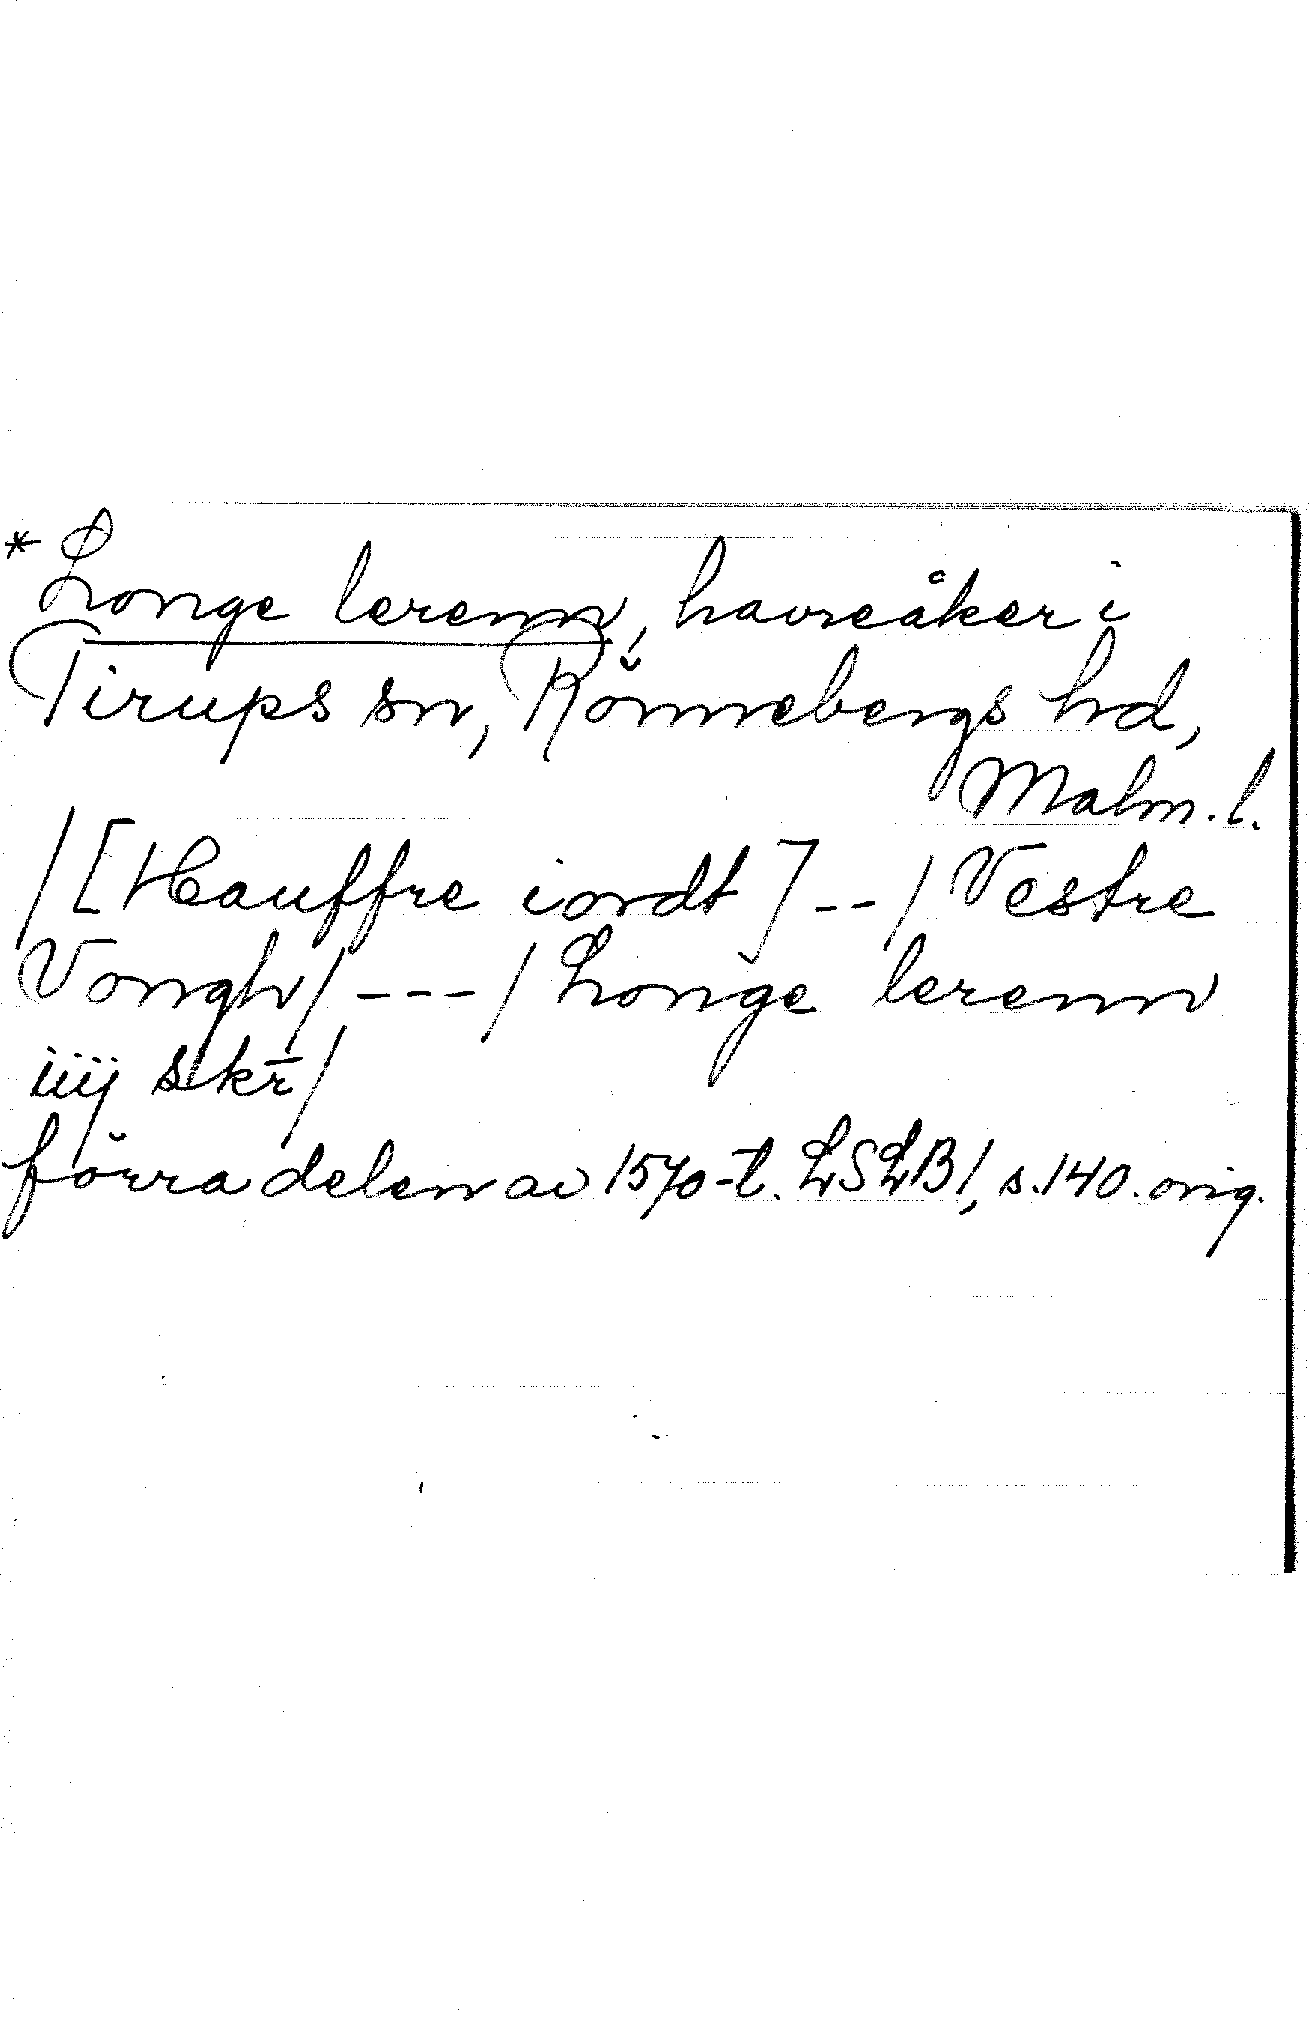 * Longe lerenn, havreåker i
Tirups sn, Rönnebergs hd,
Malm. l.
/[Hauffre iordt]--/Vestre
Vongh/---/Longe lerenn
iiij skr̄/
förra delen av 1570-t. LSLB1, s.140. orig.